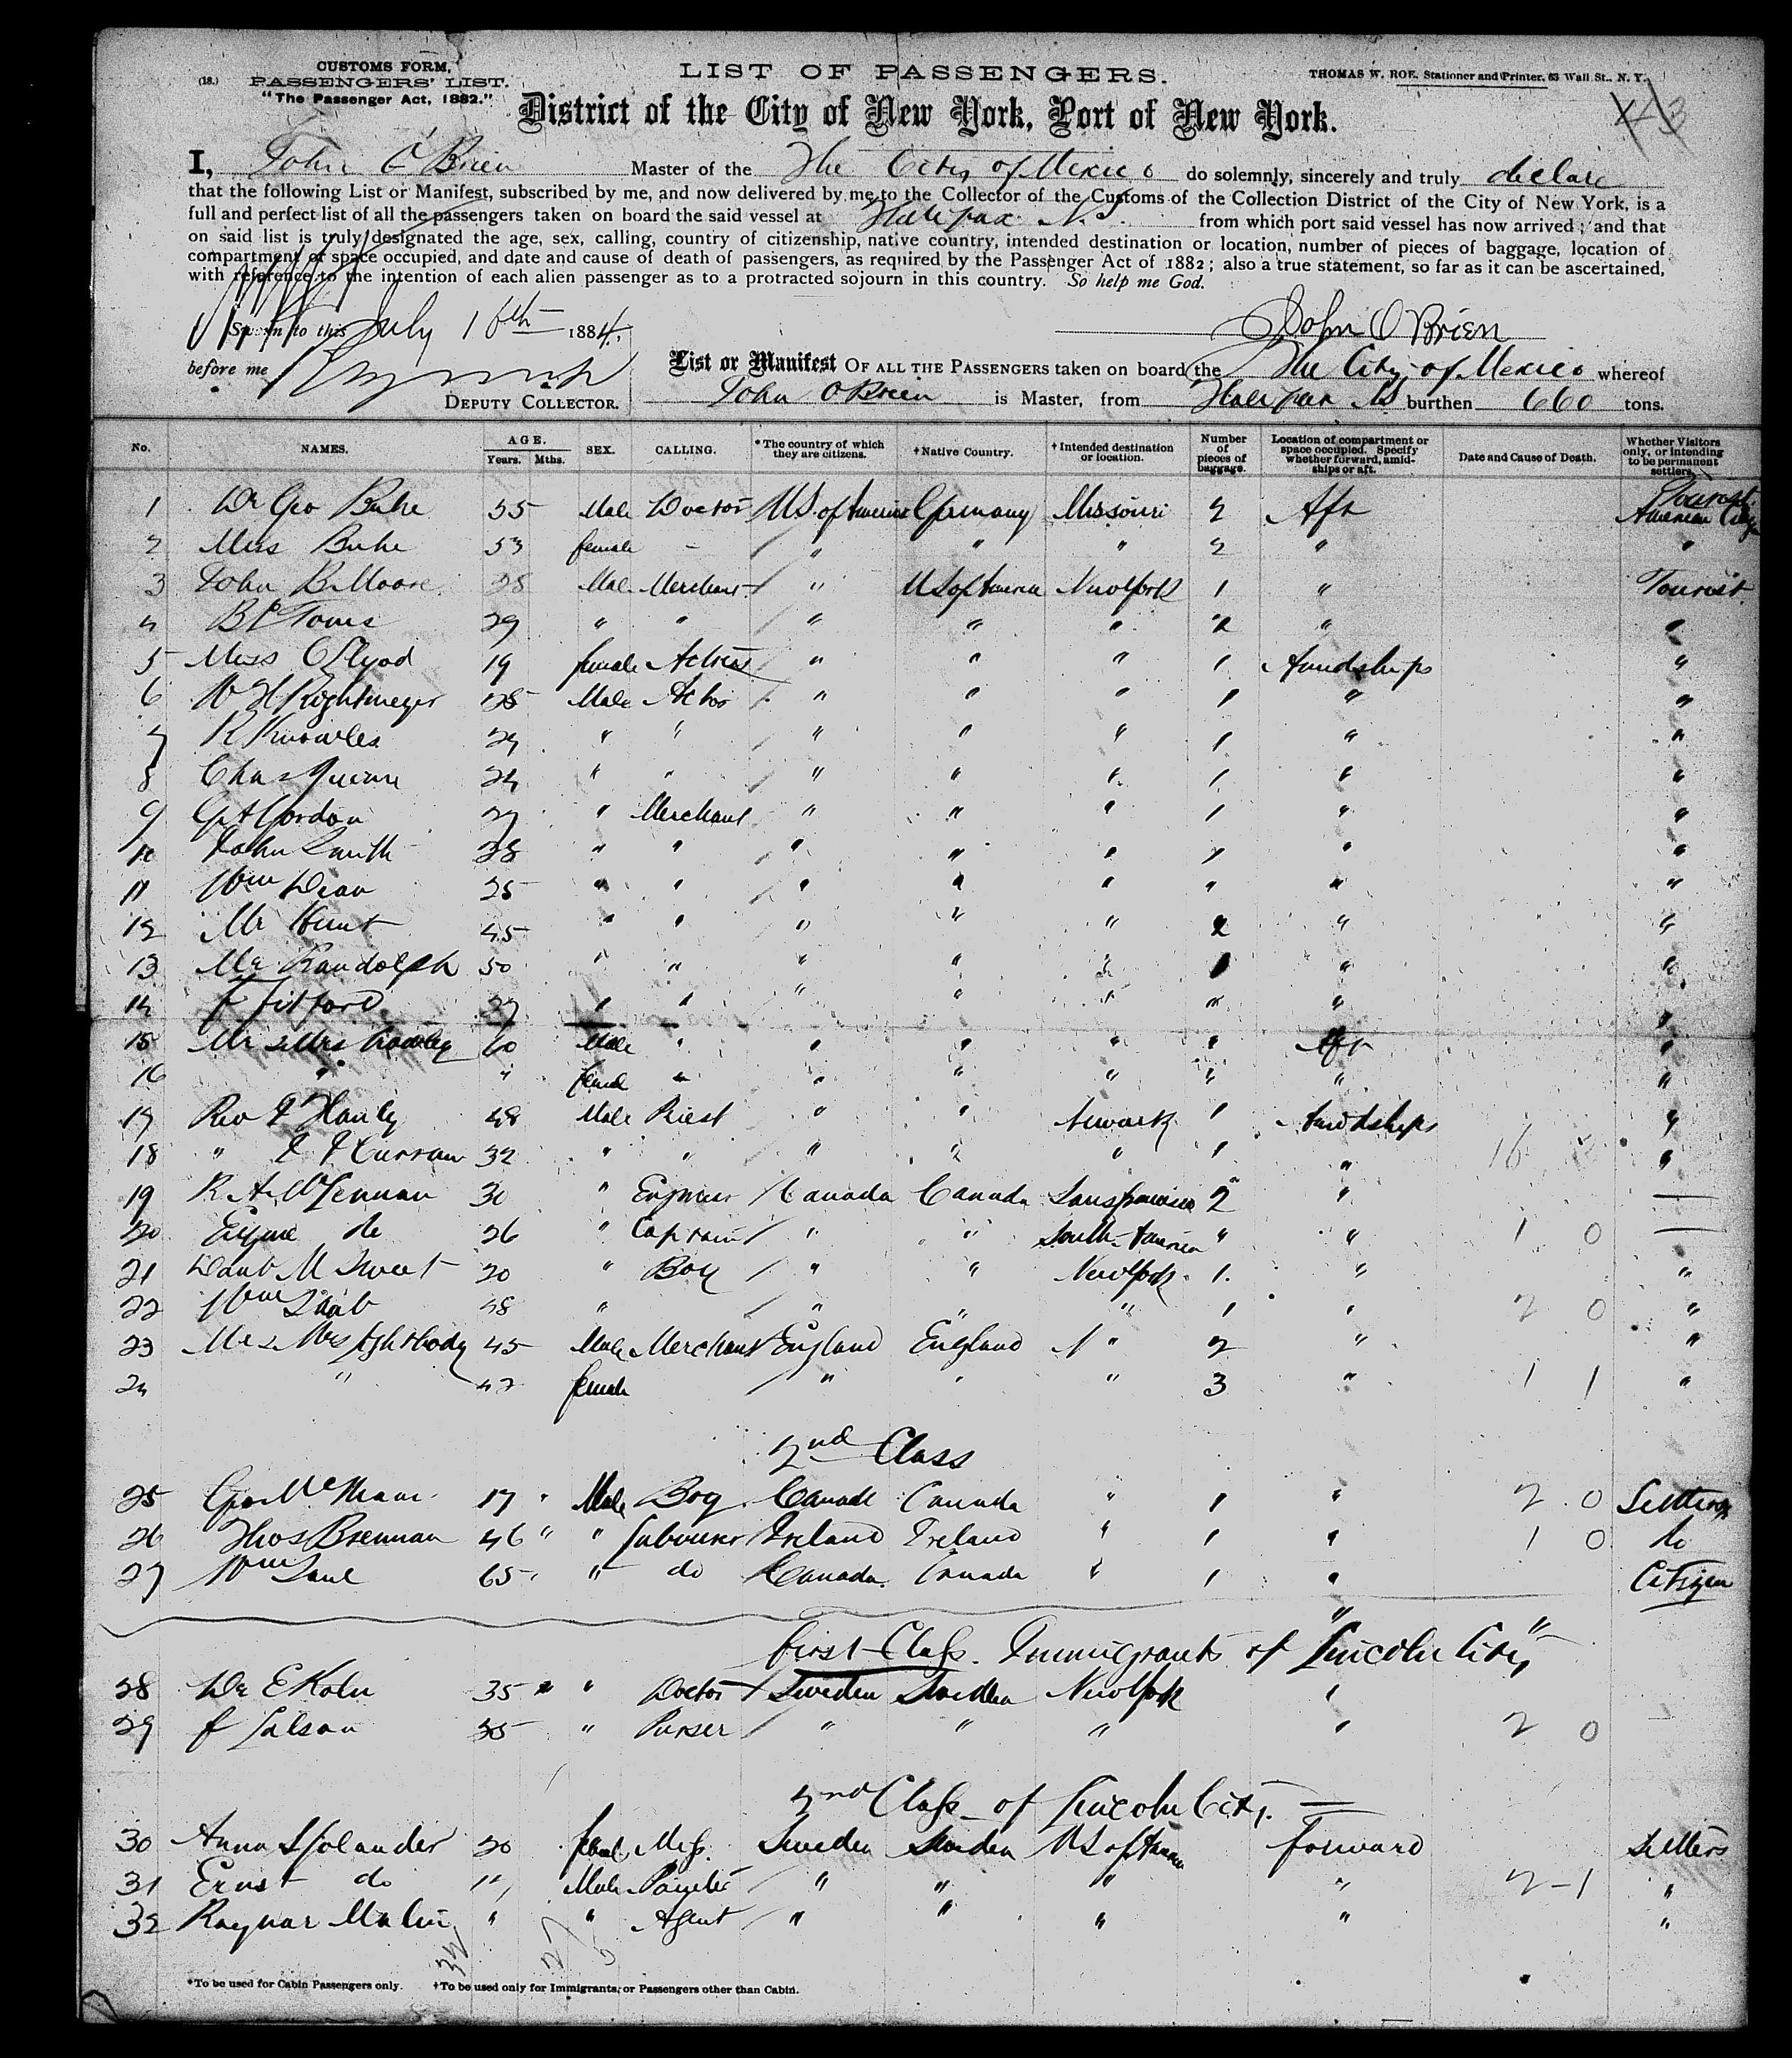 (18.) CUSTOMS FORM,
PASSENGERS' LIST.
"The Passenger Act, 1882."
LIST OF PASSENGERS.
THOMAS W. ROE, Stationer and Printer, 63 Wall St., N. Y.
District of the City of New York, Port of New York.
I, John O'Brien Master of the The City of Mexico do solemnly, sincerely and truly declare
that the following List or Manifest, subscribed by me, and now delivered by me to the Collector of the Customs of the Collection District of the City of New York, is a
full and perfect list of all the passengers taken on board the said vessel at Halifax N.S. from which port said vessel has now arrived; and that
on said list is truly designated the age, sex, calling, country of citizenship, native country, intended destination or location, number of pieces of baggage, location of
compartment or space occupied, and date and cause of death of passengers, as required by the Passenger Act of 1882; also a true statement, so far as it can be ascertained,
with reference to the intention of each alien passenger as to a protracted sojourn in this country. So help me God.
Sworn to this July 16th 1884, John O'Brien
before me
DEPUTY COLLECTOR.
List or Manifest OF ALL THE PASSENGERS taken on board the The City of Mexico whereof
John O'Brien is Master, from Halifax NS burthen 660 tons.
No. NAMES. AGE. Years. Mths. SEX. CALLING. *The country of which they are citizens. †Native Country. †Intended destination or location. Number of pieces of baggage. Location of compartment or space occupied. Specify whether forward, amidships or aft. Date and Cause of Death. Whether Visitors only, or intending to be permanent settlers.
1 Dr Geo 55 Male Doctor U.S. of America Germany Missouri 2 Aft Tourist American
2 Mrs 53 female - " " " 2 " "
3 John B Moore 28 Male Merchant " US of America New York 1 " Tourist
4 29 " " " " " 2 " "
5 Miss 19 female Actress " " " 1 Amidships "
6 W H Rightmeyer 28 Male Actor " " " 1 " "
7 R Knowles 29 " " " " " 1 " "
8 Chas 24 " " " " " 1 " "
9 Gordon 27 " Merchant " " " 1 " "
10 John Smith 38 " " " " " 1 " "
11 Wm Dean 25 " " " " " " " "
12 Mr Hunt 45 " " " " " 2 " "
13 Mr Randolph 50 " " " " " 1 " "
14 27 " " " " " " " "
15 Mr & Mrs 60 Male " " " " " Aft "
16 " " female " " " " " " "
17 Rev Hanly 48 Male Priest " " Newark 1 Amidships "
18 " Curran 32 " " " " " 1 " 16 "
19 R. A. McLennan 30 " Engineer Canada Canada 2 " —
20 do 26 " Captain " " South America " " 1 0 —
21 M Sweet 20 " Boy " " New York 1. " "
22 Wm 48 " " " " 1 " 2 0 "
23 Mr & Mrs 45 Male Merchant England England " 2 " "
24 " 42 female " " " 3 " 1 1 "
2nd Class
25 Geo 17 " Male Boy Canada Canada " 1 " 2 0 Settlers
26 Thos Brennan 46 " " Labourer Ireland Ireland " 1 " 1 0 do
27 Wm 65 " do Canada Canada " 1 " Citizen
First Class Immigrants of "Lincoln City"
28 Dr E Kolu 35 " " Doctor Sweden Sweden New York "
29 35 " Purser " " " " 2 0
2nd Class of Lincoln City
30 Anna Sjolander 20 female Miss Sweden Sweden US of America Forward Settlers
31 Ernst do Male Painter " " " " 2-1 "
32 Ragnar Malin " " Agent " " " " "
*To be used for Cabin Passengers only. †To be used only for Immigrants, or Passengers other than Cabin.